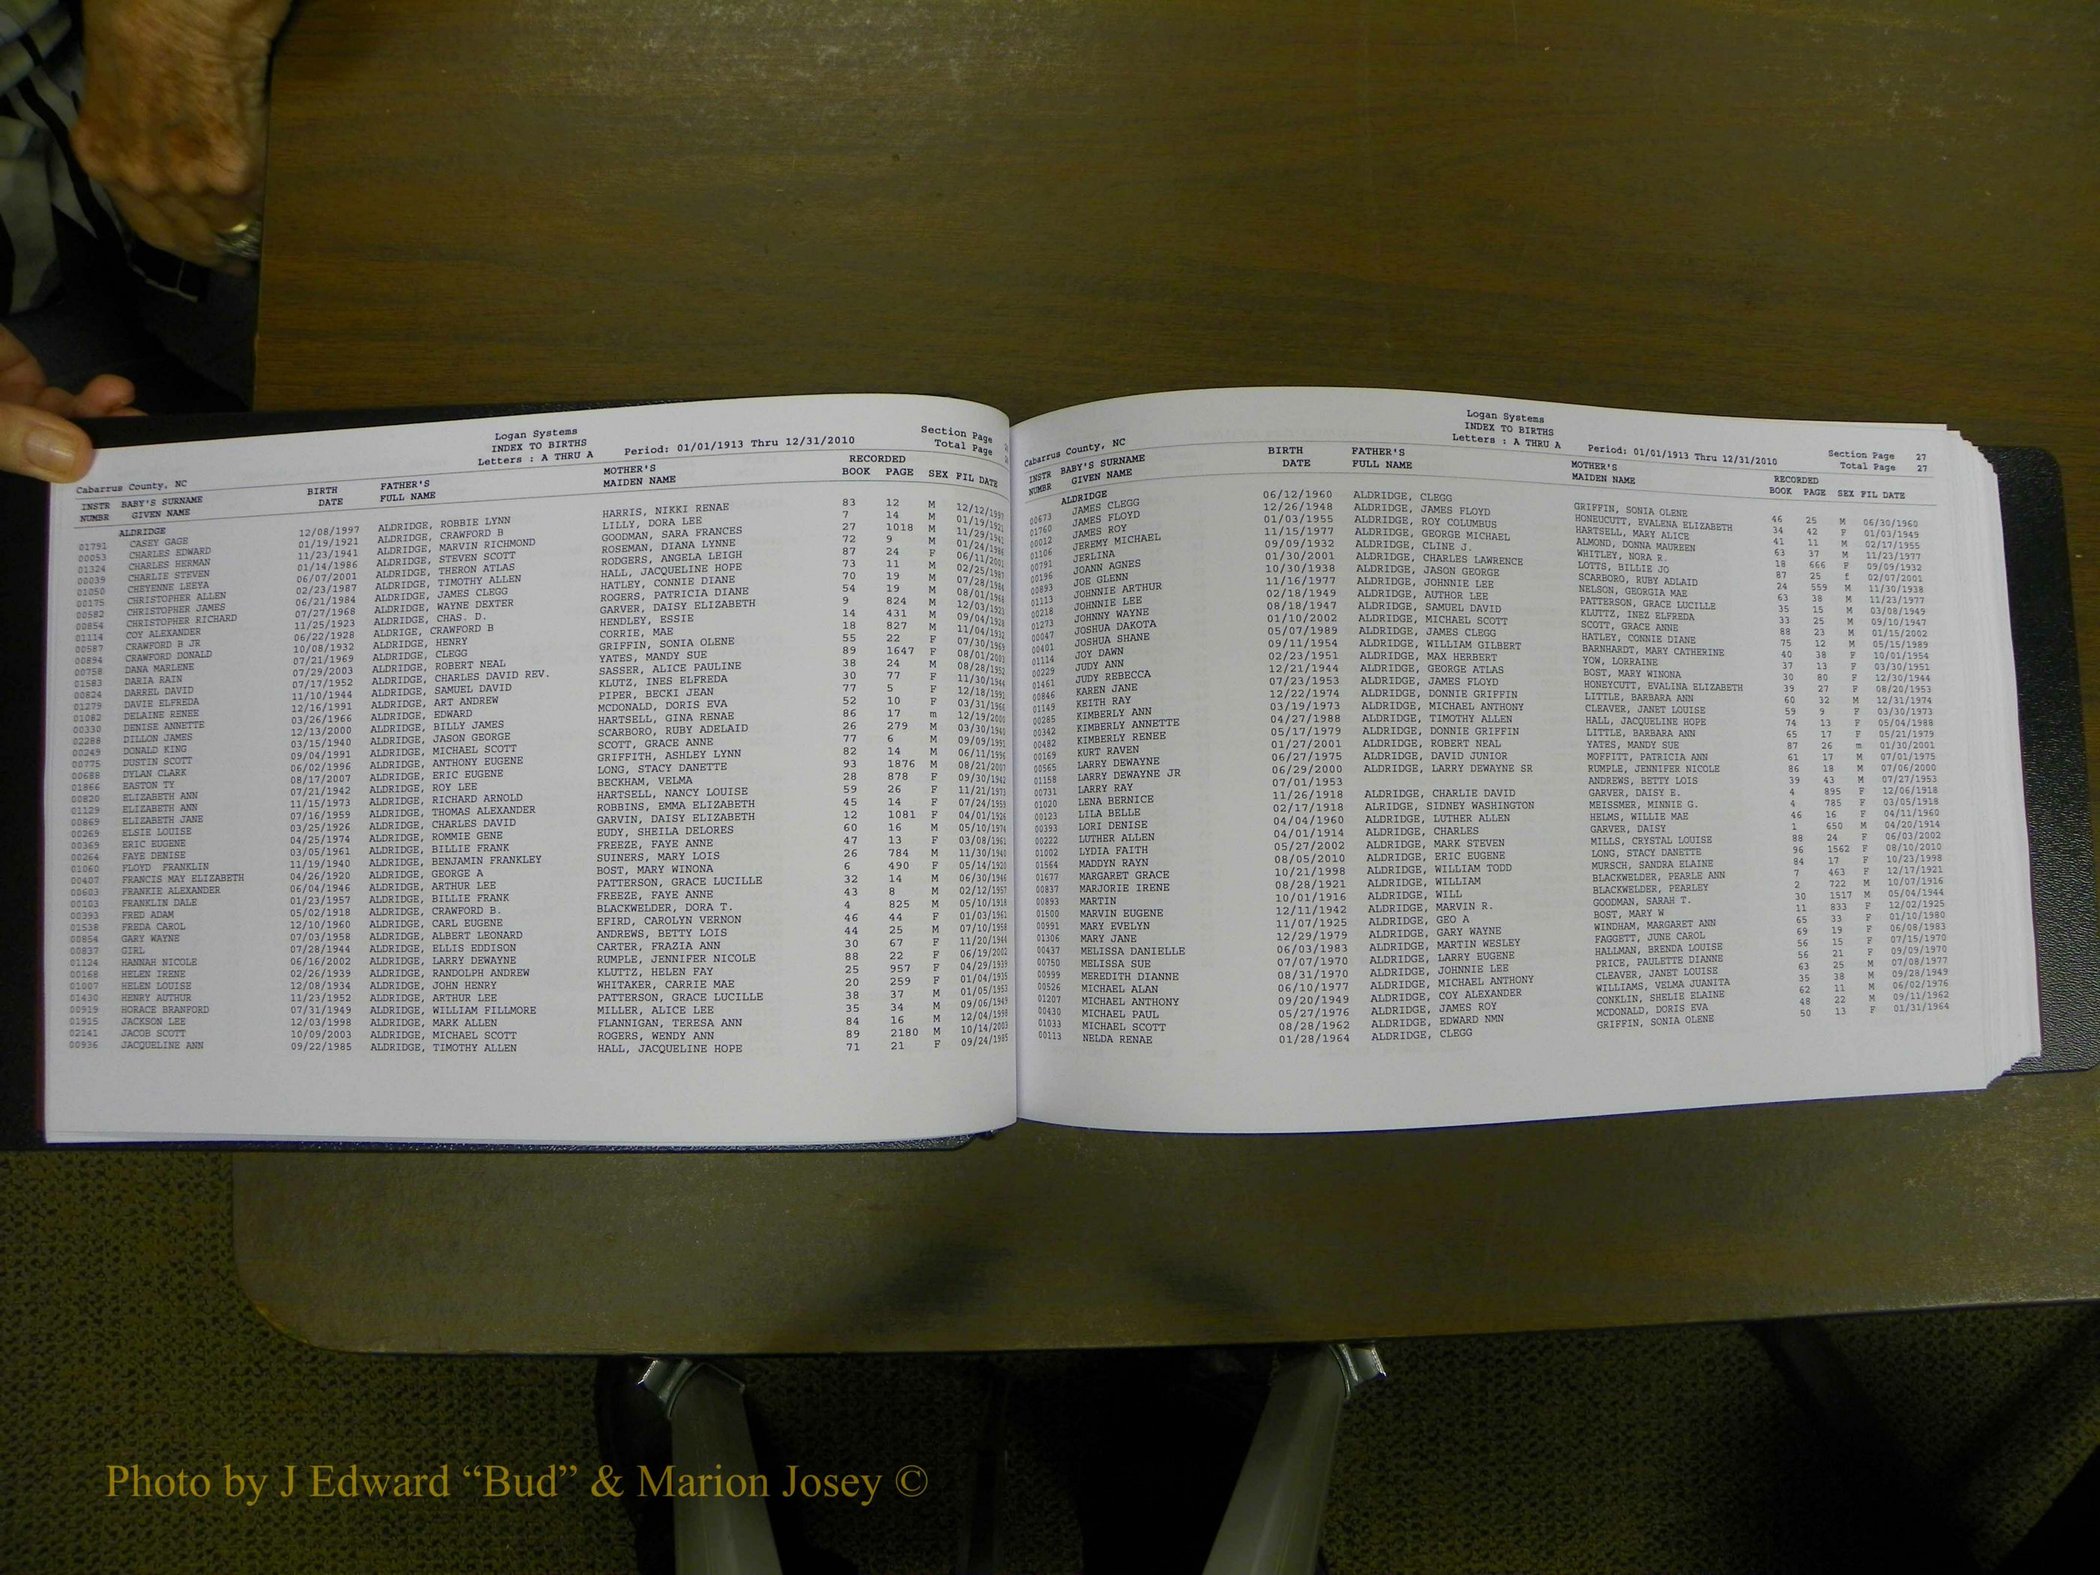 Logan Systems
INDEX TO BIRTHS
Letters : A THRU A Period: 01/01/1913 Thru 12/31/2010
Section Page
Total Page
Cabarrus County, NC
INSTR BABY'S SURNAME BIRTH FATHER'S MOTHER'S RECORDED
NUMBR GIVEN NAME DATE FULL NAME MAIDEN NAME BOOK PAGE SEX FIL DATE
ALDRIDGE
01791 CASEY GAGE 12/08/1997 ALDRIDGE, ROBBIE LYNN HARRIS, NIKKI RENAE 83 12 M 12/12/1997
00053 CHARLES EDWARD 01/19/1921 ALDRIDGE, CRAWFORD B LILLY, DORA LEE 7 14 M 01/19/1921
01324 CHARLES HERMAN 11/23/1941 ALDRIDGE, MARVIN RICHMOND GOODMAN, SARA FRANCES 27 1018 M 11/29/1941
00039 CHARLIE STEVEN 01/14/1986 ALDRIDGE, STEVEN SCOTT ROSEMAN, DIANA LYNNE 72 9 M 01/24/1986
01050 CHEYENNE LEEYA 06/07/2001 ALDRIDGE, THERON ATLAS RODGERS, ANGELA LEIGH 87 24 F 06/11/2001
00175 CHRISTOPHER ALLEN 02/23/1987 ALDRIDGE, TIMOTHY ALLEN HALL, JACQUELINE HOPE 73 11 M 02/25/1987
00582 CHRISTOPHER JAMES 06/21/1984 ALDRIDGE, JAMES CLEGG HATLEY, CONNIE DIANE 70 19 M 07/28/1984
00854 CHRISTOPHER RICHARD 07/27/1968 ALDRIDGE, WAYNE DEXTER ROGERS, PATRICIA DIANE 54 19 M 08/01/1968
01114 COY ALEXANDER 11/25/1923 ALDRIDGE, CHAS. D. GARVER, DAISY ELIZABETH 9 824 M 12/03/1923
00587 CRAWFORD B JR 06/22/1928 ALDRIGE, CRAWFORD B HENDLEY, ESSIE 14 431 M 09/04/1928
00894 CRAWFORD DONALD 10/08/1932 ALDRIDGE, HENRY CORRIE, MAE 18 827 M 11/04/1932
00758 DANA MARLENE 07/21/1969 ALDRIDGE, CLEGG GRIFFIN, SONIA OLENE 55 22 F 07/30/1969
01583 DARIA RAIN 07/29/2003 ALDRIDGE, ROBERT NEAL YATES, MANDY SUE 89 1647 F 08/01/2003
00824 DARREL DAVID 07/17/1952 ALDRIDGE, CHARLES DAVID REV. SASSER, ALICE PAULINE 38 24 M 08/28/1952
01279 DAVIE ELFREDA 11/10/1944 ALDRIDGE, SAMUEL DAVID KLUTZ, INES ELFREDA 30 77 F 11/30/1944
01082 DELAINE RENEE 12/16/1991 ALDRIDGE, ART ANDREW PIPER, BECKI JEAN 77 5 F 12/18/1991
00330 DENISE ANNETTE 03/26/1966 ALDRIDGE, EDWARD MCDONALD, DORIS EVA 52 10 F 03/31/1966
02288 DILLON JAMES 12/13/2000 ALDRIDGE, BILLY JAMES HARTSELL, GINA RENAE 86 17 m 12/19/2000
00249 DONALD KING 03/15/1940 ALDRIDGE, JASON GEORGE SCARBORO, RUBY ADELAID 26 279 M 03/30/1940
00775 DUSTIN SCOTT 09/04/1991 ALDRIDGE, MICHAEL SCOTT SCOTT, GRACE ANNE 77 6 M 09/09/1991
00688 DYLAN CLARK 06/02/1996 ALDRIDGE, ANTHONY EUGENE GRIFFITH, ASHLEY LYNN 82 14 M 06/11/1996
01866 EASTON TY 08/17/2007 ALDRIDGE, ERIC EUGENE LONG, STACY DANETTE 93 1876 M 08/21/2007
00820 ELIZABETH ANN 07/21/1942 ALDRIDGE, ROY LEE BECKHAM, VELMA 28 878 F 09/30/1942
01129 ELIZABETH ANN 11/15/1973 ALDRIDGE, RICHARD ARNOLD HARTSELL, NANCY LOUISE 59 26 F 11/21/1973
00869 ELIZABETH JANE 07/16/1959 ALDRIDGE, THOMAS ALEXANDER ROBBINS, EMMA ELIZABETH 45 14 F 07/24/1959
00269 ELSIE LOUISE 03/25/1926 ALDRIDGE, CHARLES DAVID GARVIN, DAISY ELIZABETH 12 1081 F 04/01/1926
00369 ERIC EUGENE 04/25/1974 ALDRIDGE, ROMMIE GENE EUDY, SHEILA DELORES 60 16 M 05/10/1974
00264 FAYE DENISE 03/05/1961 ALDRIDGE, BILLIE FRANK FREEZE, FAYE ANNE 47 13 F 03/08/1961
01060 FLOYD FRANKLIN 11/19/1940 ALDRIDGE, BENJAMIN FRANKLEY SUINERS, MARY LOIS 26 784 M 11/30/1940
00407 FRANCIS MAY ELIZABETH 04/26/1920 ALDRIDGE, GEORGE A BOST, MARY WINONA 6 490 F 05/14/1920
00603 FRANKIE ALEXANDER 06/04/1946 ALDRIDGE, ARTHUR LEE PATTERSON, GRACE LUCILLE 32 14 M 06/30/1946
00103 FRANKLIN DALE 01/23/1957 ALDRIDGE, BILLIE FRANK FREEZE, FAYE ANNE 43 8 M 02/12/1957
00393 FRED ADAM 05/02/1918 ALDRIDGE, CRAWFORD B. BLACKWELDER, DORA T. 4 825 M 05/10/1918
01538 FREDA CAROL 12/10/1960 ALDRIDGE, CARL EUGENE EFIRD, CAROLYN VERNON 46 44 F 01/03/1961
00854 GARY WAYNE 07/03/1958 ALDRIDGE, ALBERT LEONARD ANDREWS, BETTY LOIS 44 25 M 07/10/1958
00837 GIRL 07/28/1944 ALDRIDGE, ELLIS EDDISON CARTER, FRAZIA ANN 30 67 F 11/20/1944
01124 HANNAH NICOLE 06/16/2002 ALDRIDGE, LARRY DEWAYNE RUMPLE, JENNIFER NICOLE 88 22 F 06/19/2002
00168 HELEN IRENE 02/26/1939 ALDRIDGE, RANDOLPH ANDREW KLUTTZ, HELEN FAY 25 957 F 04/29/1939
01007 HELEN LOUISE 12/08/1934 ALDRIDGE, JOHN HENRY WHITAKER, CARRIE MAE 20 259 F 01/04/1935
01430 HENRY AUTHUR 11/23/1952 ALDRIDGE, ARTHUR LEE PATTERSON, GRACE LUCILLE 38 37 M 01/05/1953
00919 HORACE BRANFORD 07/31/1949 ALDRIDGE, WILLIAM FILLMORE MILLER, ALICE LEE 35 34 M 09/06/1949
01915 JACKSON LEE 12/03/1998 ALDRIDGE, MARK ALLEN FLANNIGAN, TERESA ANN 84 16 M 12/04/1998
02141 JACOB SCOTT 10/09/2003 ALDRIDGE, MICHAEL SCOTT ROGERS, WENDY ANN 89 2180 M 10/14/2003
00936 JACQUELINE ANN 09/22/1985 ALDRIDGE, TIMOTHY ALLEN HALL, JACQUELINE HOPE 71 21 F 09/24/1985
Logan Systems
INDEX TO BIRTHS
Letters : A THRU A Period: 01/01/1913 Thru 12/31/2010
Section Page 27
Total Page 27
Cabarrus County, NC
INSTR BABY'S SURNAME BIRTH FATHER'S MOTHER'S RECORDED
NUMBR GIVEN NAME DATE FULL NAME MAIDEN NAME BOOK PAGE SEX FIL DATE
ALDRIDGE
00673 JAMES CLEGG 06/12/1960 ALDRIDGE, CLEGG GRIFFIN, SONIA OLENE 46 25 M 06/30/1960
01760 JAMES FLOYD 12/26/1948 ALDRIDGE, JAMES FLOYD HONEUCUTT, EVALENA ELIZABETH 34 42 F 01/03/1949
00012 JAMES ROY 01/03/1955 ALDRIDGE, ROY COLUMBUS HARTSELL, MARY ALICE 41 11 M 02/17/1955
01106 JEREMY MICHAEL 11/15/1977 ALDRIDGE, GEORGE MICHAEL ALMOND, DONNA MAUREEN 63 37 M 11/23/1977
00791 JERLINA 09/09/1932 ALDRIDGE, CLINE J. WHITLEY, NORA R. 18 666 F 09/09/1932
00196 JOANN AGNES 01/30/2001 ALDRIDGE, CHARLES LAWRENCE LOTTS, BILLIE JO 87 25 f 02/07/2001
00893 JOE GLENN 10/30/1938 ALDRIDGE, JASON GEORGE SCARBORO, RUBY ADLAID 24 559 M 11/30/1938
01113 JOHNNIE ARTHUR 11/16/1977 ALDRIDGE, JOHNNIE LEE NELSON, GEORGIA MAE 63 38 M 11/23/1977
00218 JOHNNIE LEE 02/18/1949 ALDRIDGE, AUTHOR LEE PATTERSON, GRACE LUCILLE 35 15 M 03/08/1949
01273 JOHNNY WAYNE 08/18/1947 ALDRIDGE, SAMUEL DAVID KLUTTZ, INEZ ELFREDA 33 25 M 09/10/1947
00047 JOSHUA DAKOTA 01/10/2002 ALDRIDGE, MICHAEL SCOTT SCOTT, GRACE ANNE 88 23 M 01/15/2002
00401 JOSHUA SHANE 05/07/1989 ALDRIDGE, JAMES CLEGG HATLEY, CONNIE DIANE 75 12 M 05/15/1989
01114 JOY DAWN 09/11/1954 ALDRIDGE, WILLIAM GILBERT BARNHARDT, MARY CATHERINE 40 38 F 10/01/1954
00229 JUDY ANN 02/23/1951 ALDRIDGE, MAX HERBERT YOW, LORRAINE 37 13 F 03/30/1951
01461 JUDY REBECCA 12/21/1944 ALDRIDGE, GEORGE ATLAS BOST, MARY WINONA 30 80 F 12/30/1944
00846 KAREN JANE 07/23/1953 ALDRIDGE, JAMES FLOYD HONEYCUTT, EVALINA ELIZABETH 39 27 F 08/20/1953
01149 KEITH RAY 12/22/1974 ALDRIDGE, DONNIE GRIFFIN LITTLE, BARBARA ANN 60 32 M 12/31/1974
00285 KIMBERLY ANN 03/19/1973 ALDRIDGE, MICHAEL ANTHONY CLEAVER, JANET LOUISE 59 9 F 03/30/1973
00342 KIMBERLY ANNETTE 04/27/1988 ALDRIDGE, TIMOTHY ALLEN HALL, JACQUELINE HOPE 74 13 F 05/04/1988
00482 KIMBERLY RENEE 05/17/1979 ALDRIDGE, DONNIE GRIFFIN LITTLE, BARBARA ANN 65 17 F 05/21/1979
00169 KURT RAVEN 01/27/2001 ALDRIDGE, ROBERT NEAL YATES, MANDY SUE 87 26 m 01/30/2001
00565 LARRY DEWAYNE 06/27/1975 ALDRIDGE, DAVID JUNIOR MOFFITT, PATRICIA ANN 61 17 M 07/01/1975
01158 LARRY DEWAYNE JR 06/29/2000 ALDRIDGE, LARRY DEWAYNE SR RUMPLE, JENNIFER NICOLE 86 18 M 07/06/2000
00731 LARRY RAY 07/01/1953 ANDREWS, BETTY LOIS 39 43 M 07/27/1953
01020 LENA BERNICE 11/26/1918 ALDRIDGE, CHARLIE DAVID GARVER, DAISY E. 4 895 F 12/06/1918
00123 LILA BELLE 02/17/1918 ALRIDGE, SIDNEY WASHINGTON MEISSMER, MINNIE G. 4 785 F 03/05/1918
00393 LORI DENISE 04/04/1960 ALDRIDGE, LUTHER ALLEN HELMS, WILLIE MAE 46 16 F 04/11/1960
00222 LUTHER ALLEN 04/01/1914 ALDRIDGE, CHARLES GARVER, DAISY 1 650 M 04/20/1914
01002 LYDIA FAITH 05/27/2002 ALDRIDGE, MARK STEVEN MILLS, CRYSTAL LOUISE 88 24 F 06/03/2002
01564 MADDYN RAYN 08/05/2010 ALDRIDGE, ERIC EUGENE LONG, STACY DANETTE 96 1562 F 08/10/2010
01677 MARGARET GRACE 10/21/1998 ALDRIDGE, WILLIAM TODD MURSCH, SANDRA ELAINE 84 17 F 10/23/1998
00837 MARJORIE IRENE 08/28/1921 ALDRIDGE, WILLIAM BLACKWELDER, PEARLE ANN 7 463 F 12/17/1921
00893 MARTIN 10/01/1916 ALDRIDGE, WILL BLACKWELDER, PEARLEY 2 722 M 10/07/1916
01500 MARVIN EUGENE 12/11/1942 ALDRIDGE, MARVIN R. GOODMAN, SARAH T. 30 1517 M 05/04/1944
00991 MARY EVELYN 11/07/1925 ALDRIDGE, GEO A BOST, MARY W 11 833 F 12/02/1925
01306 MARY JANE 12/29/1979 ALDRIDGE, GARY WAYNE WINDHAM, MARGARET ANN 65 33 F 01/10/1980
00437 MELISSA DANIELLE 06/03/1983 ALDRIDGE, MARTIN WESLEY FAGGETT, JUNE CAROL 69 19 F 06/08/1983
00750 MELISSA SUE 07/07/1970 ALDRIDGE, LARRY EUGENE HALLMAN, BRENDA LOUISE 56 15 F 07/15/1970
00999 MEREDITH DIANNE 08/31/1970 ALDRIDGE, JOHNNIE LEE PRICE, PAULETTE DIANNE 56 21 F 09/09/1970
00526 MICHAEL ALAN 06/10/1977 ALDRIDGE, MICHAEL ANTHONY CLEAVER, JANET LOUISE 63 25 M 07/08/1977
01207 MICHAEL ANTHONY 09/20/1949 ALDRIDGE, COY ALEXANDER WILLIAMS, VELMA JUANITA 35 38 M 09/28/1949
00430 MICHAEL PAUL 05/27/1976 ALDRIDGE, JAMES ROY CONKLIN, SHELIE ELAINE 62 11 M 06/02/1976
01033 MICHAEL SCOTT 08/28/1962 ALDRIDGE, EDWARD NMN MCDONALD, DORIS EVA 48 22 M 09/11/1962
00113 NELDA RENAE 01/28/1964 ALDRIDGE, CLEGG GRIFFIN, SONIA OLENE 50 13 F 01/31/1964
Photo by J Edward “Bud” & Marion Josey ©